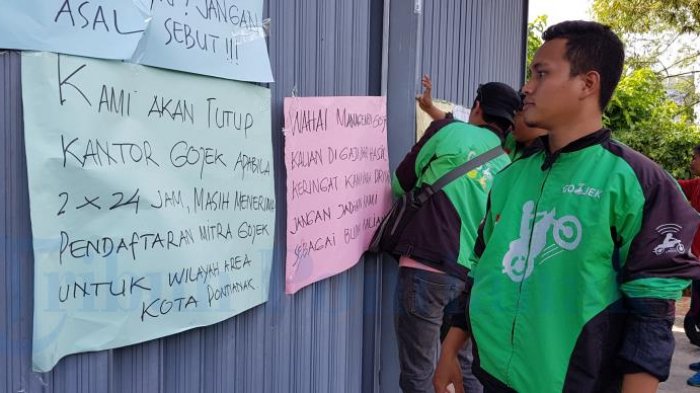 ASAL
! JANGAN
SEBUT !!!
KAMI AKAN TUTUP
KANTOR GOJEK APABILA
2 x 24 JAM, MASIH MENERIMA
PENDAFTARAN MITRA GOJEK
UNTUK WILAYAH AREA
KOTA PONTIANAK
WAHAI
KALIAN DI GAJI DARI HASIL
KERINGAT KAMI
JANGAN JADIKAN KAMI
SEBAGAI
GOJEK